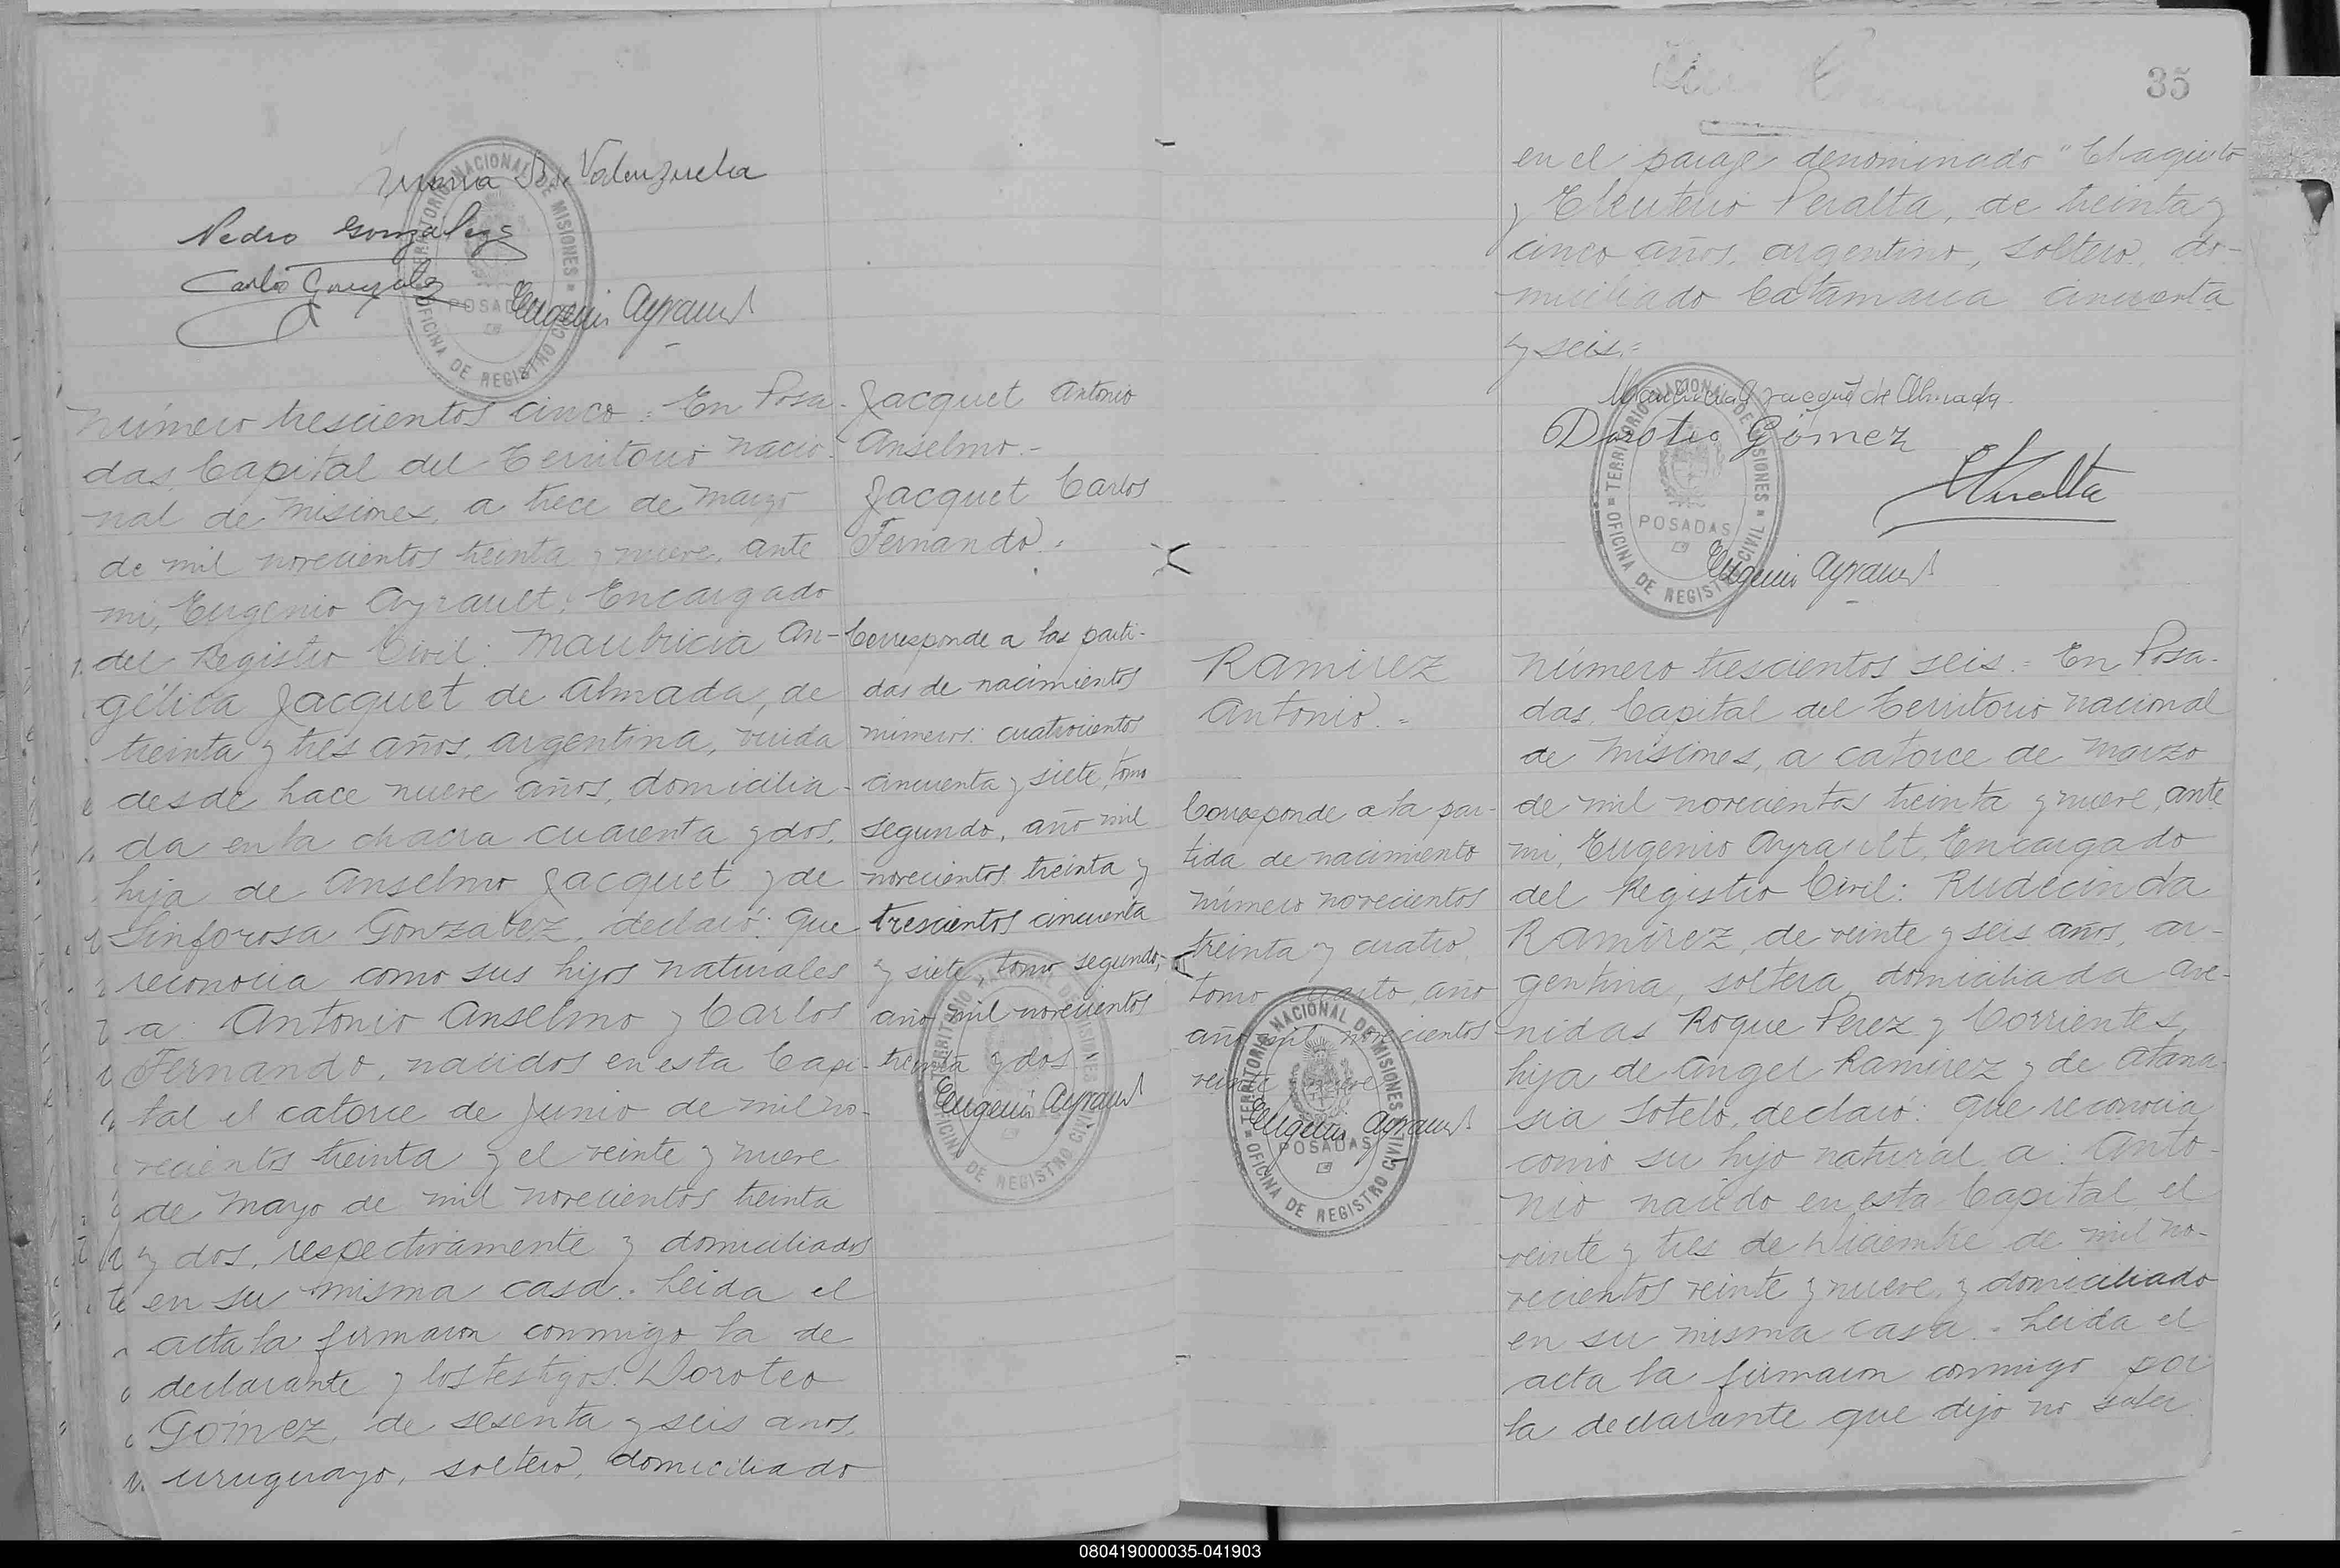 Juana B. de Valenzuela
Pedro González
Carlos Gonzalez
Eugenio Ayrault
TERRITORIO NACIONAL DE MISIONES
POSADAS
OFICINA DE REGISTRO CIVIL
Número trescientos cinco = En Posa-
das, Capital del Territorio nacio-
nal de Misiones, a trece de marzo
de mil novecientos treinta y nueve, ante
mi, Eugenio Ayrault, Encargado
del Registro Civil: Mauricia An-
gélica Jacquet de Almada, de
treinta y tres años, argentina, viuda
desde hace nueve años, domicilia-
da en la chacra cuarenta y dos,
hija de Anselmo Jacquet y de
Sinforosa Gonzalez, declaró: Que
reconocia como sus hijos naturales
a: Antonio Anselmo y Carlos
Fernando, nacidos en esta Capi-
tal el catorce de Junio de mil no-
vecientos treinta y el veinte y nueve
de Mayo de mil novecientos treinta
y dos, respectivamente y domiciliados
en su misma casa. Leida el
acta la firmaron conmigo la de
declarante y los testigos: Doroteo
Gómez, de sesenta y seis anos,
uruguayo, soltero, domiciliado
Jacquet Antonio
Anselmo.-
Jacquet Carlos
Fernando.
Corresponde a las parti-
das de nacimientos
números: cuatrocientos
cincuenta y siete, tomo
segundo, año mil
novecientos treinta y
trescientos cincuenta
y siete, tomo segundo,
año mil novecientos
treinta y dos
Eugenio Ayrault
TERRITORIO NACIONAL DE MISIONES
OFICINA DE REGISTRO CIVIL
35
en el paraje denominado "Chaquito"
y Eleuterio Peralta, de treinta y
cinco años, argentino, soltero, do-
miciliado Catamarca cincuenta
y seis.=
Mauricia A Jacquet de Almada
Doroteo Gómez
EPeralta
Eugenio Ayrault
TERRITORIO NACIONAL DE MISIONES
POSADAS
OFICINA DE REGISTRO CIVIL
Ramirez
Antonio. =
Corresponde a la par-
tida de nacimiento
número novecientos
treinta y cuatro,
tomo cuarto, año
año mil novecientos
veinte nueve
Eugenio Ayrault
TERRITORIO NACIONAL DE MISIONES
POSADAS
OFICINA DE REGISTRO CIVIL
Número trescientos seis. = En Posa-
das, Capital del Territorio nacional
de Misiones, a catorce de marzo
de mil novecientos treinta y nueve, ante
mi, Eugenio Ayrault, Encargado
del Registro Civil: Rudecinda
Ramirez, de veinte y seis años, ar-
gentina, soltera, domiciliada Ave-
nidas Roque Perez y Corrientes,
hija de Angel Ramirez y de Atana-
sia Sotelo, declaró: Que reconocia
como su hijo natural a: Anto-
nio nacido en esta Capital el
veinte y tres de Diciembre de mil no-
vecientos veinte y nueve, y domiciliado
en su misma casa. - Leida el
acta la firmaron conmigo por
la declarante que dijo no saber
080419000035-041903